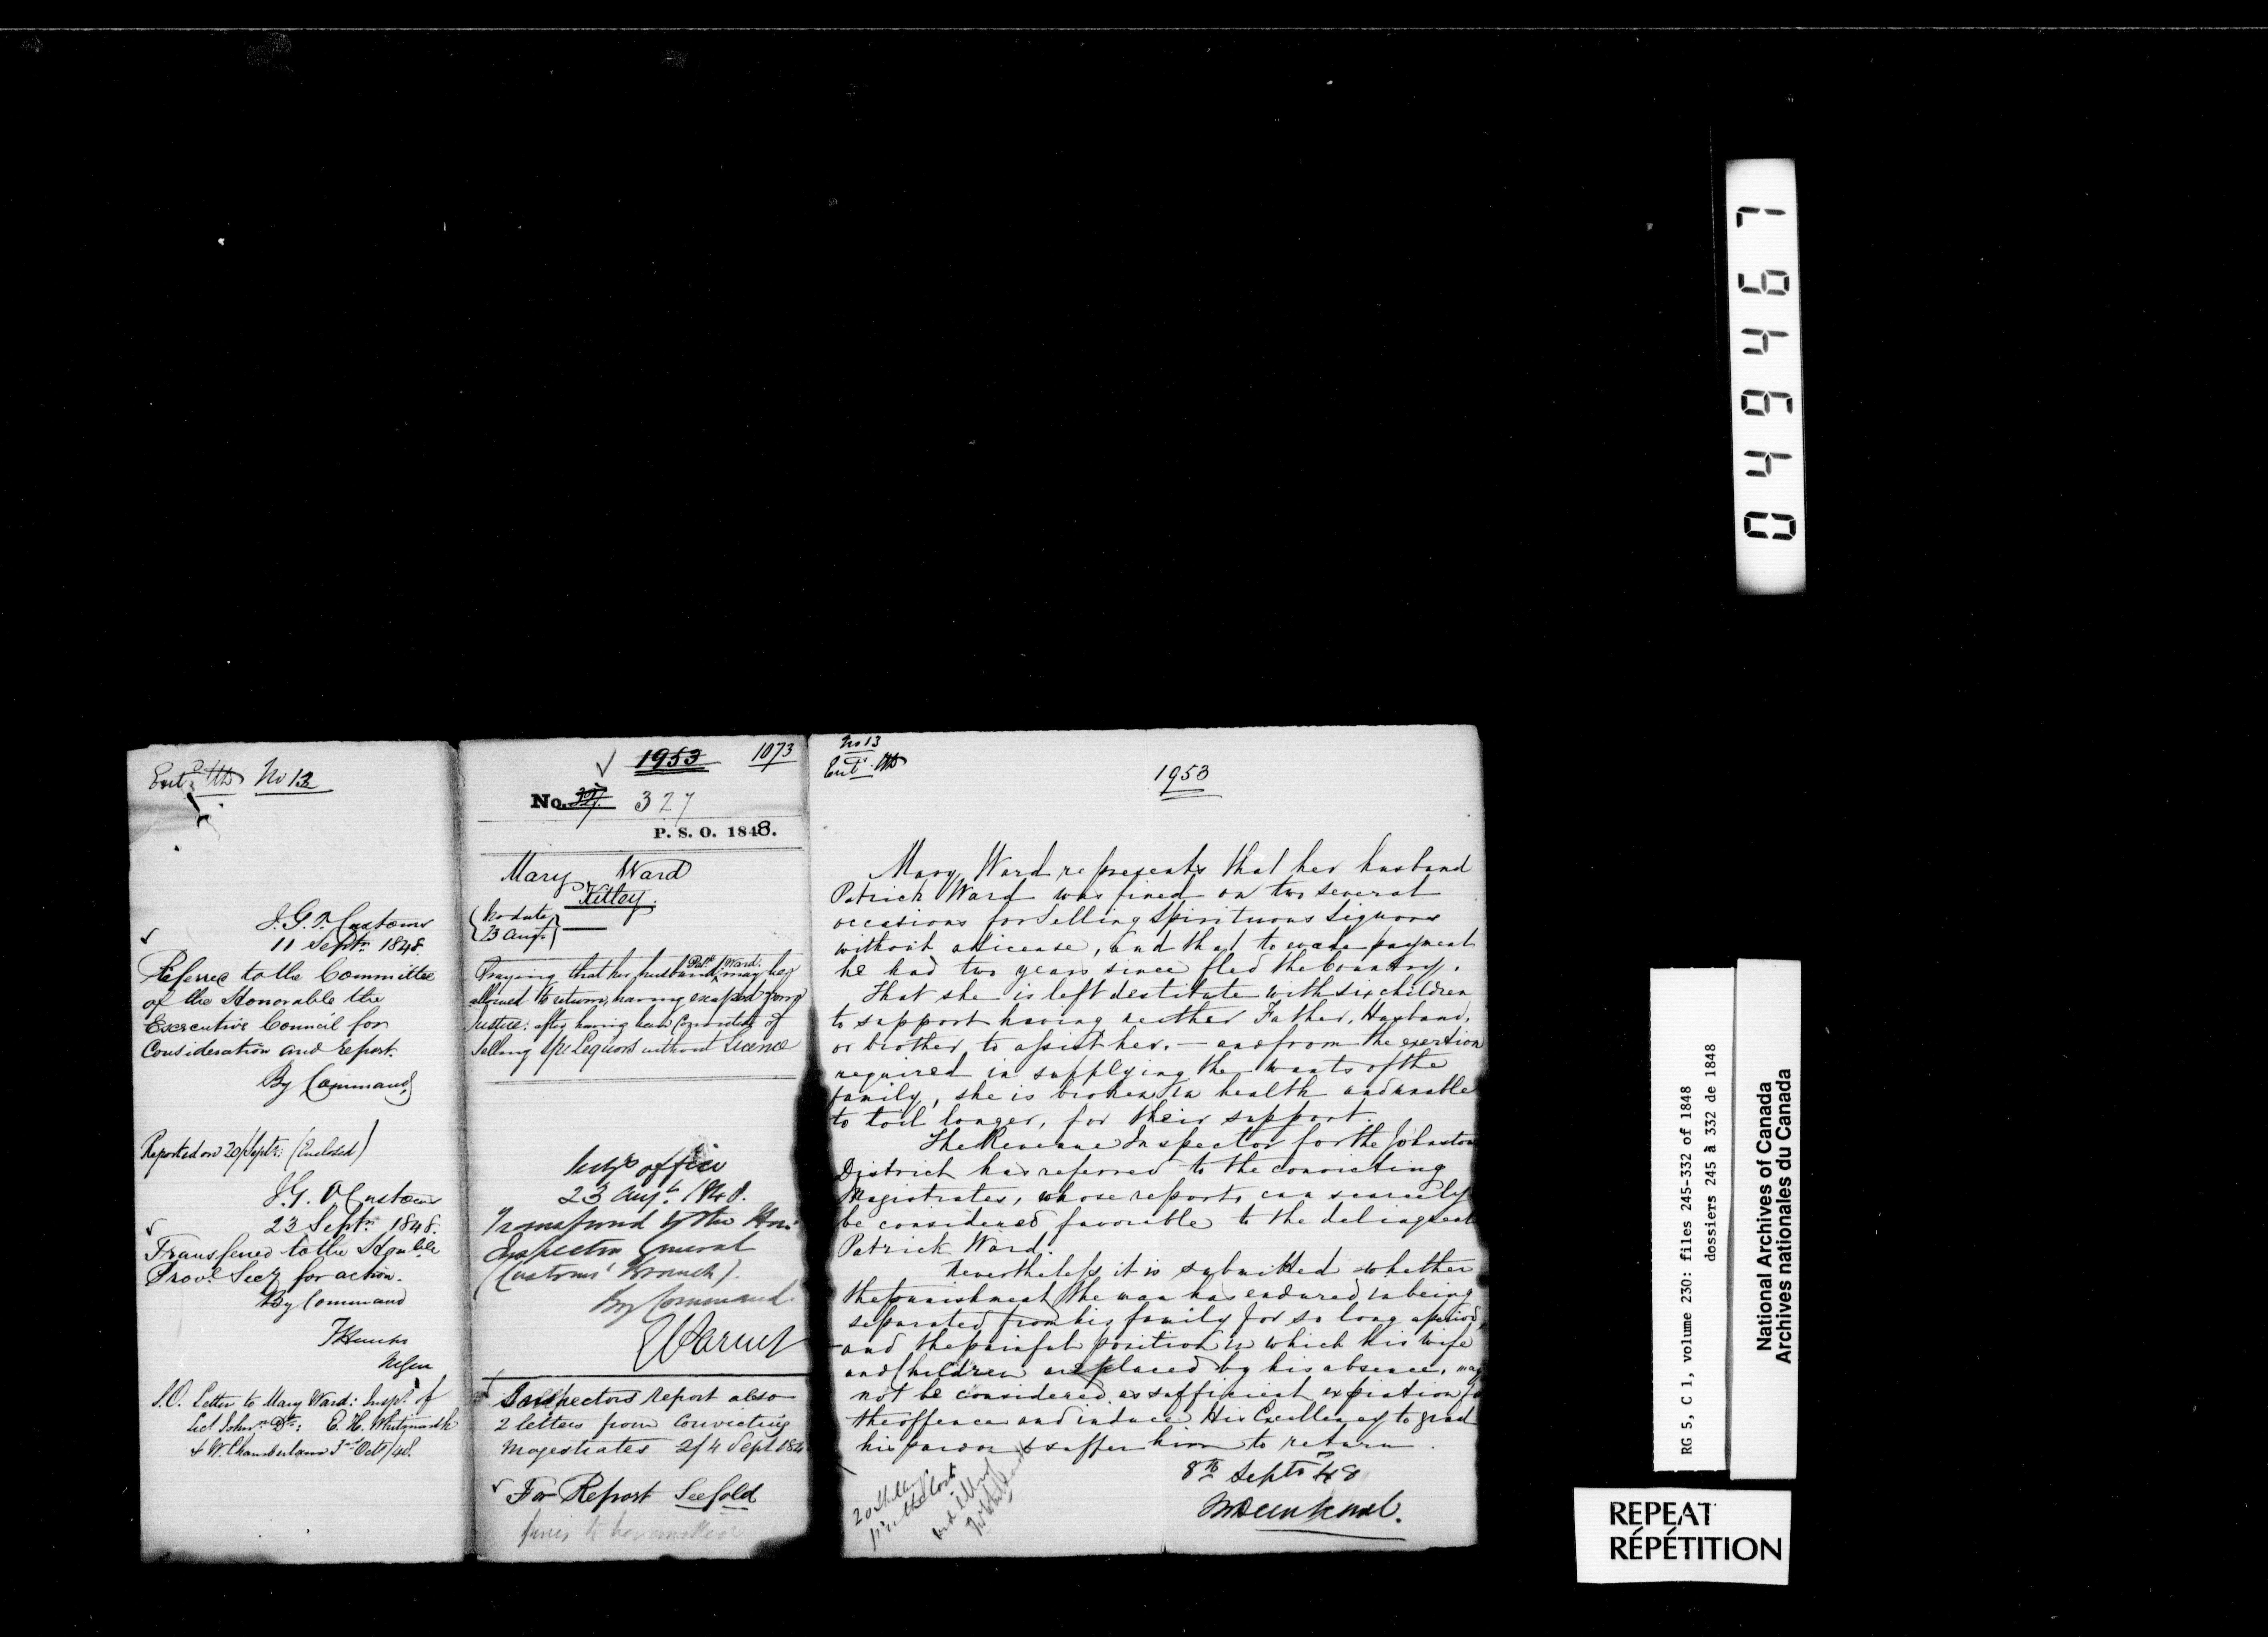 Ent^d No 13
I. G. O. Customs
11 Septr 1848.
Referred to the Committee
of the Honorable the
Executive Council for
Consideration and report.
By Command
Reported on 20 Septr: (Enclosed)
I. G. O Customs
23 Septr 1848.
Transferred to the Honble
Provl Secy for action.
By Command
F Hincks
I Gen
S.O. Letter to Mary Ward: Inspr of
Lict Johnn Dt: E. H. Whitmarsh
& W. Chamberlain 3rd Oct/48.
1953 1073
No. 327 327
P. S. O. 1848.
Mary Ward
Kitley.
(No date
23 Augt)
Praying that her husband Patk Ward: may be
allowed to return, having escaped from
Justice: after having been Convicted of
Selling Spt Liquors without Licence
Secy's office
23 Augt 1848.
Transferred to the Hon:
Inspector General
(Customs' Branch).
By Command.
Inspectors report also
2 letters from Convicting
Magestrates 2/4 Sept 184
For Report See fold
fines to be remitted
No 13
Entd
1953
Mary Ward represents that her husband
Patrick Ward was fined on two several
occasions for Selling Spirituous Liquors
without a license, and that to evade payment
he had two years since fled the Country.
That she is left destitute with six children
to support having neither Father, Husband,
or brother to assist her. — and from the exertion
required in supplying the wants of the
family, she is broken in health and unable
to toil longer, for their support.
The Revenue Inspector for the Johnstown
District has referred to the convicting
Magistrates, whose reports can scarcely
be considered favorable to the delinquent
Patrick Ward.
Nevertheless it is submitted whether
the punishment the man has endured in being
separated from his family for so long a period,
and the painful position in which his wife
and Children are placed by his absence, may
not be considered as sufficient expiation for
the offence and induce His Excellency to grant
his pardon & suffer him to return.
8th Septr 48
20 shillings
0 4 9 4 6 7
RG 5, C 1, volume 230: files 245-332 of 1848
dossiers 245 à 332 de 1848
National Archives of Canada
Archives nationales du Canada
REPEAT
RÉPÉTITION